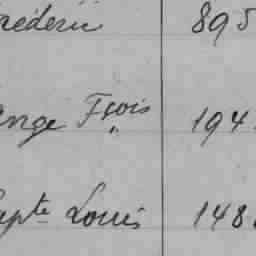 réderic 895
Ange Fçois 194
Bapte Louis 148